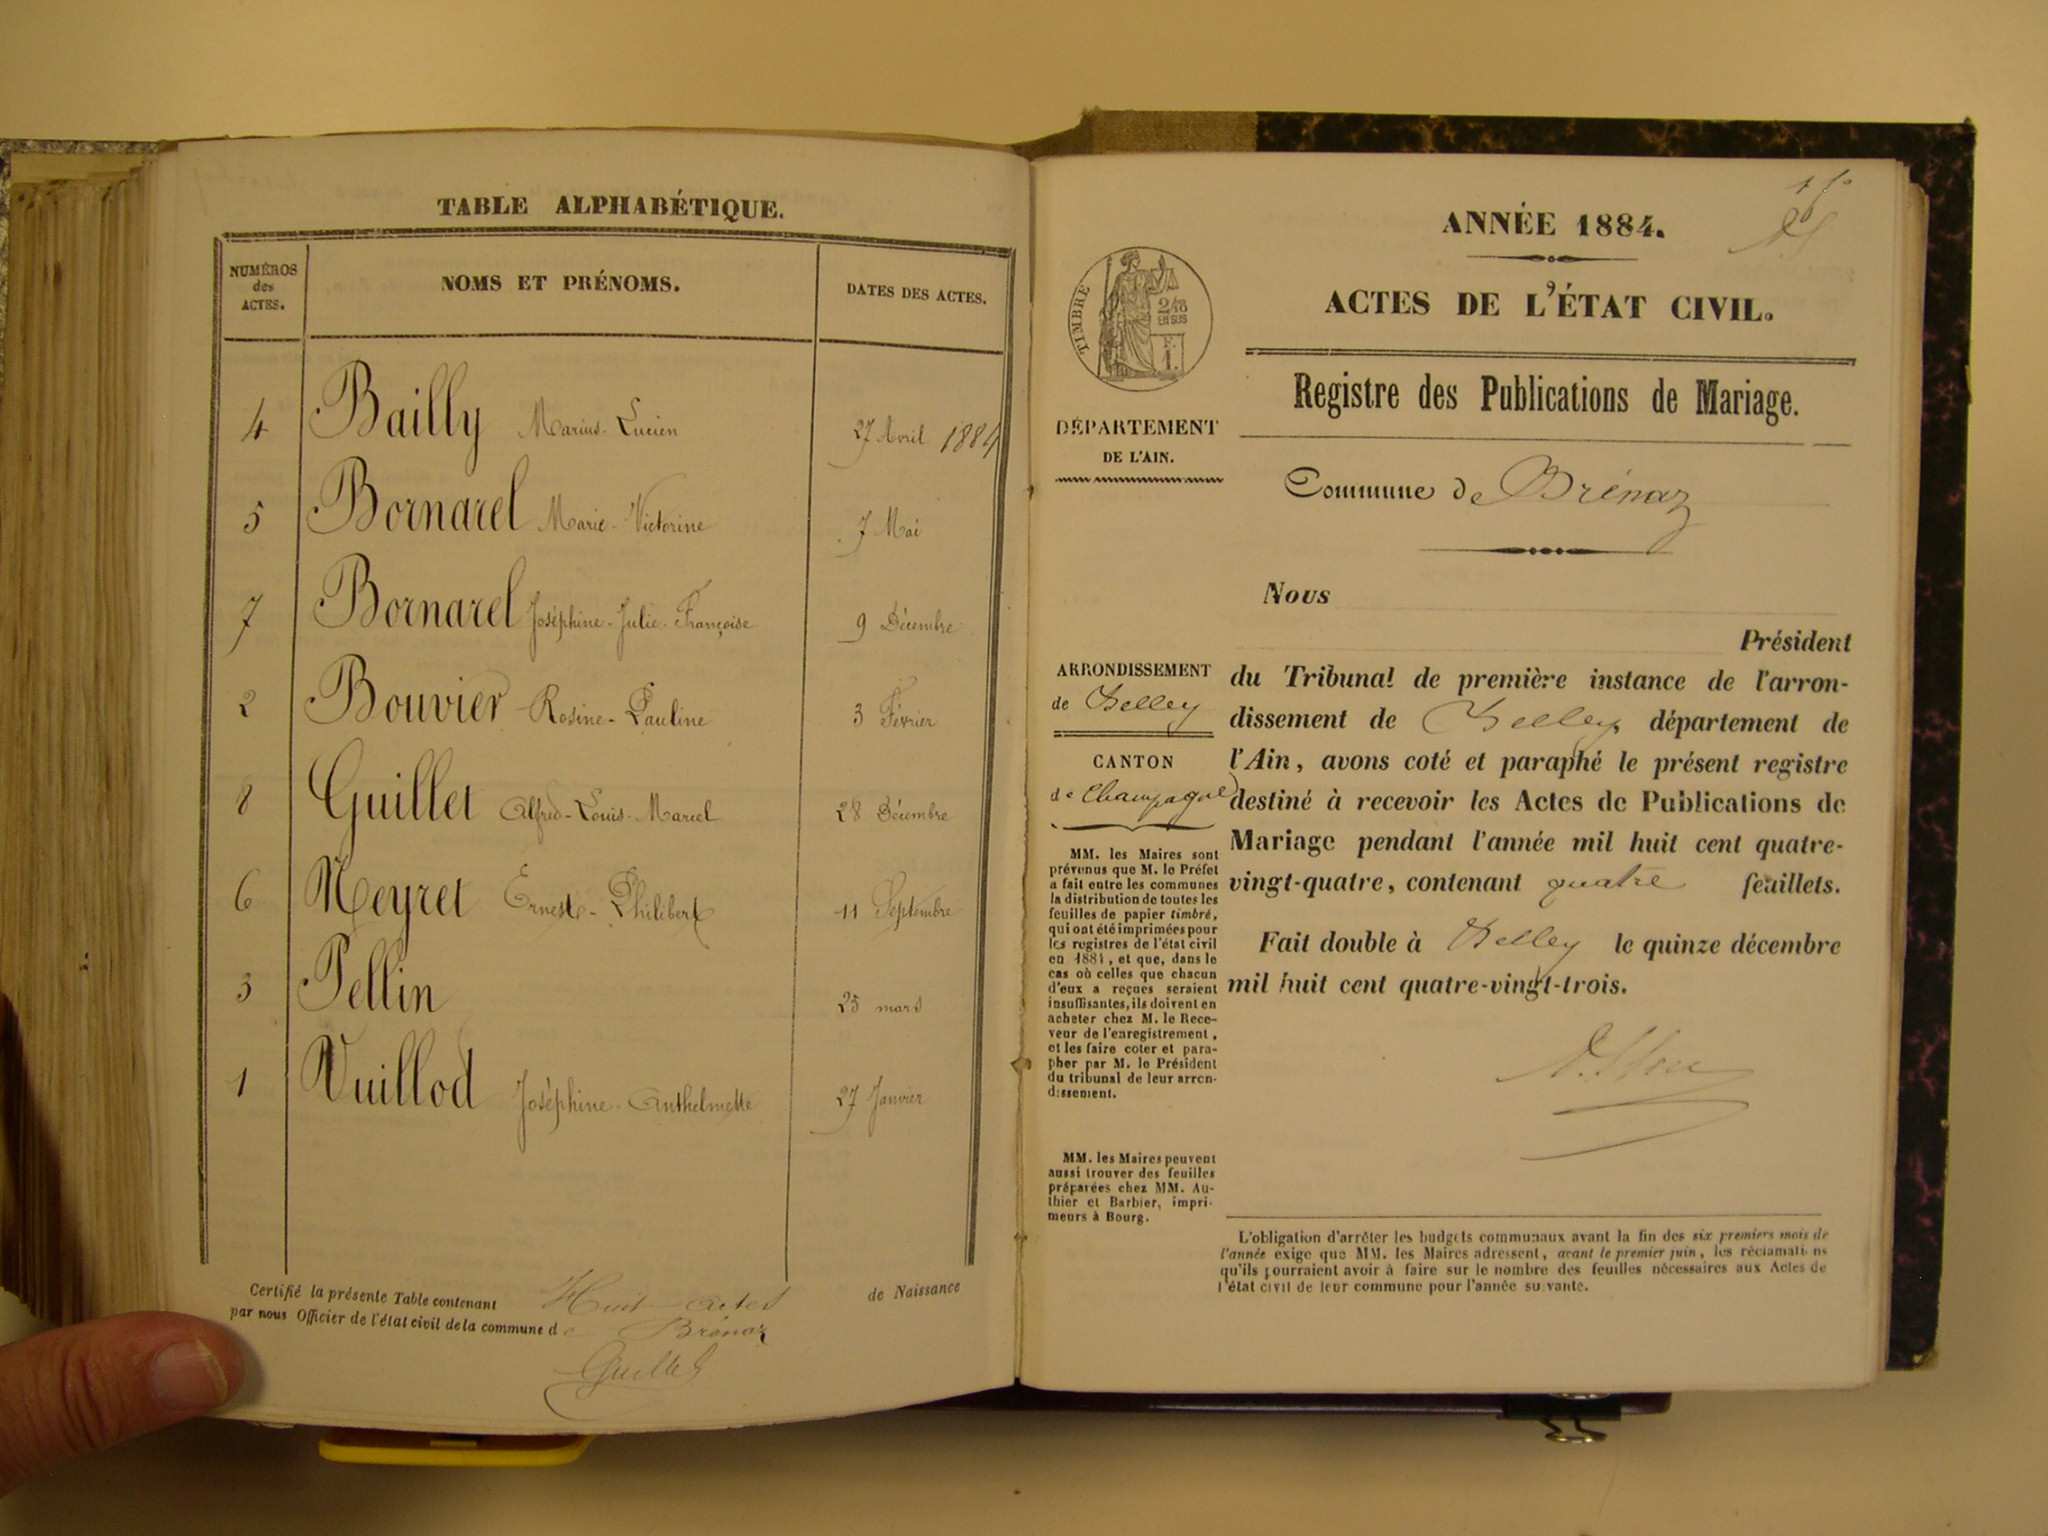 TABLE ALPHABÉTIQUE.
NUMÉROS des ACTES.
NOMS ET PRÉNOMS.
DATES DES ACTES.
4 Bailly Marius-Lucien 27 Avril 1884
5 Bornarel Marie-Victorine 7 Mai
7 Bornarel Joséphine-Julie-Françoise 9 Décembre
2 Bouvier Rosine-Pauline 3 Février
8 Guillet Alfred-Louis-Marcel 28 Décembre
6 Meyret Ernest-Philibert 11 Septembre
3 Pellin 25 mars
1 Vuillod Joséphine-Anthelmette 27 Janvier
Certifié la présente Table contenant Huit actes de Naissance
par nous Officier de l'état civil de la commune de Brénaz
Guillet
ANNÉE 1884.
ACTES DE L'ÉTAT CIVIL.
TIMBRE
2/10
EN SUS
F.
1.
Registre des Publications de Mariage.
DÉPARTEMENT
DE L'AIN.
Commune de Brénaz
Nous
Président
du Tribunal de première instance de l'arron-
dissement de Belley, département de
l'Ain, avons coté et paraphé le présent registre
destiné à recevoir les Actes de Publications de
Mariage pendant l'année mil huit cent quatre-
vingt-quatre, contenant quatre feuillets.
Fait double à Belley le quinze décembre
mil huit cent quatre-vingt-trois.
ARRONDISSEMENT
de Belley
CANTON
de Champagne
MM. les Maires sont
prévenus que M. le Préfet
a fait entre les communes
la distribution de toutes les
feuilles de papier timbré,
qui ont été imprimées pour
les registres de l'état civil
en 1884, et que, dans le
cas où celles que chacun
d'eux a reçues seraient
insuffisantes, ils doivent en
acheter chez M. le Rece-
veur de l'enregistrement,
et les faire coter et para-
pher par M. le Président
du tribunal de leur arron-
dissement.
MM. les Maires peuvent
aussi trouver des feuilles
préparées chez MM. Au-
thier et Barbier, impri-
meurs à Bourg.
L'obligation d'arrêter les budgets communaux avant la fin des six premiers mois de
l'année exige que MM. les Maires adressent, avant le premier juin, les réclamations
qu'ils pourraient avoir à faire sur le nombre des feuilles nécessaires aux Actes de
l'état civil de leur commune pour l'année suivante.